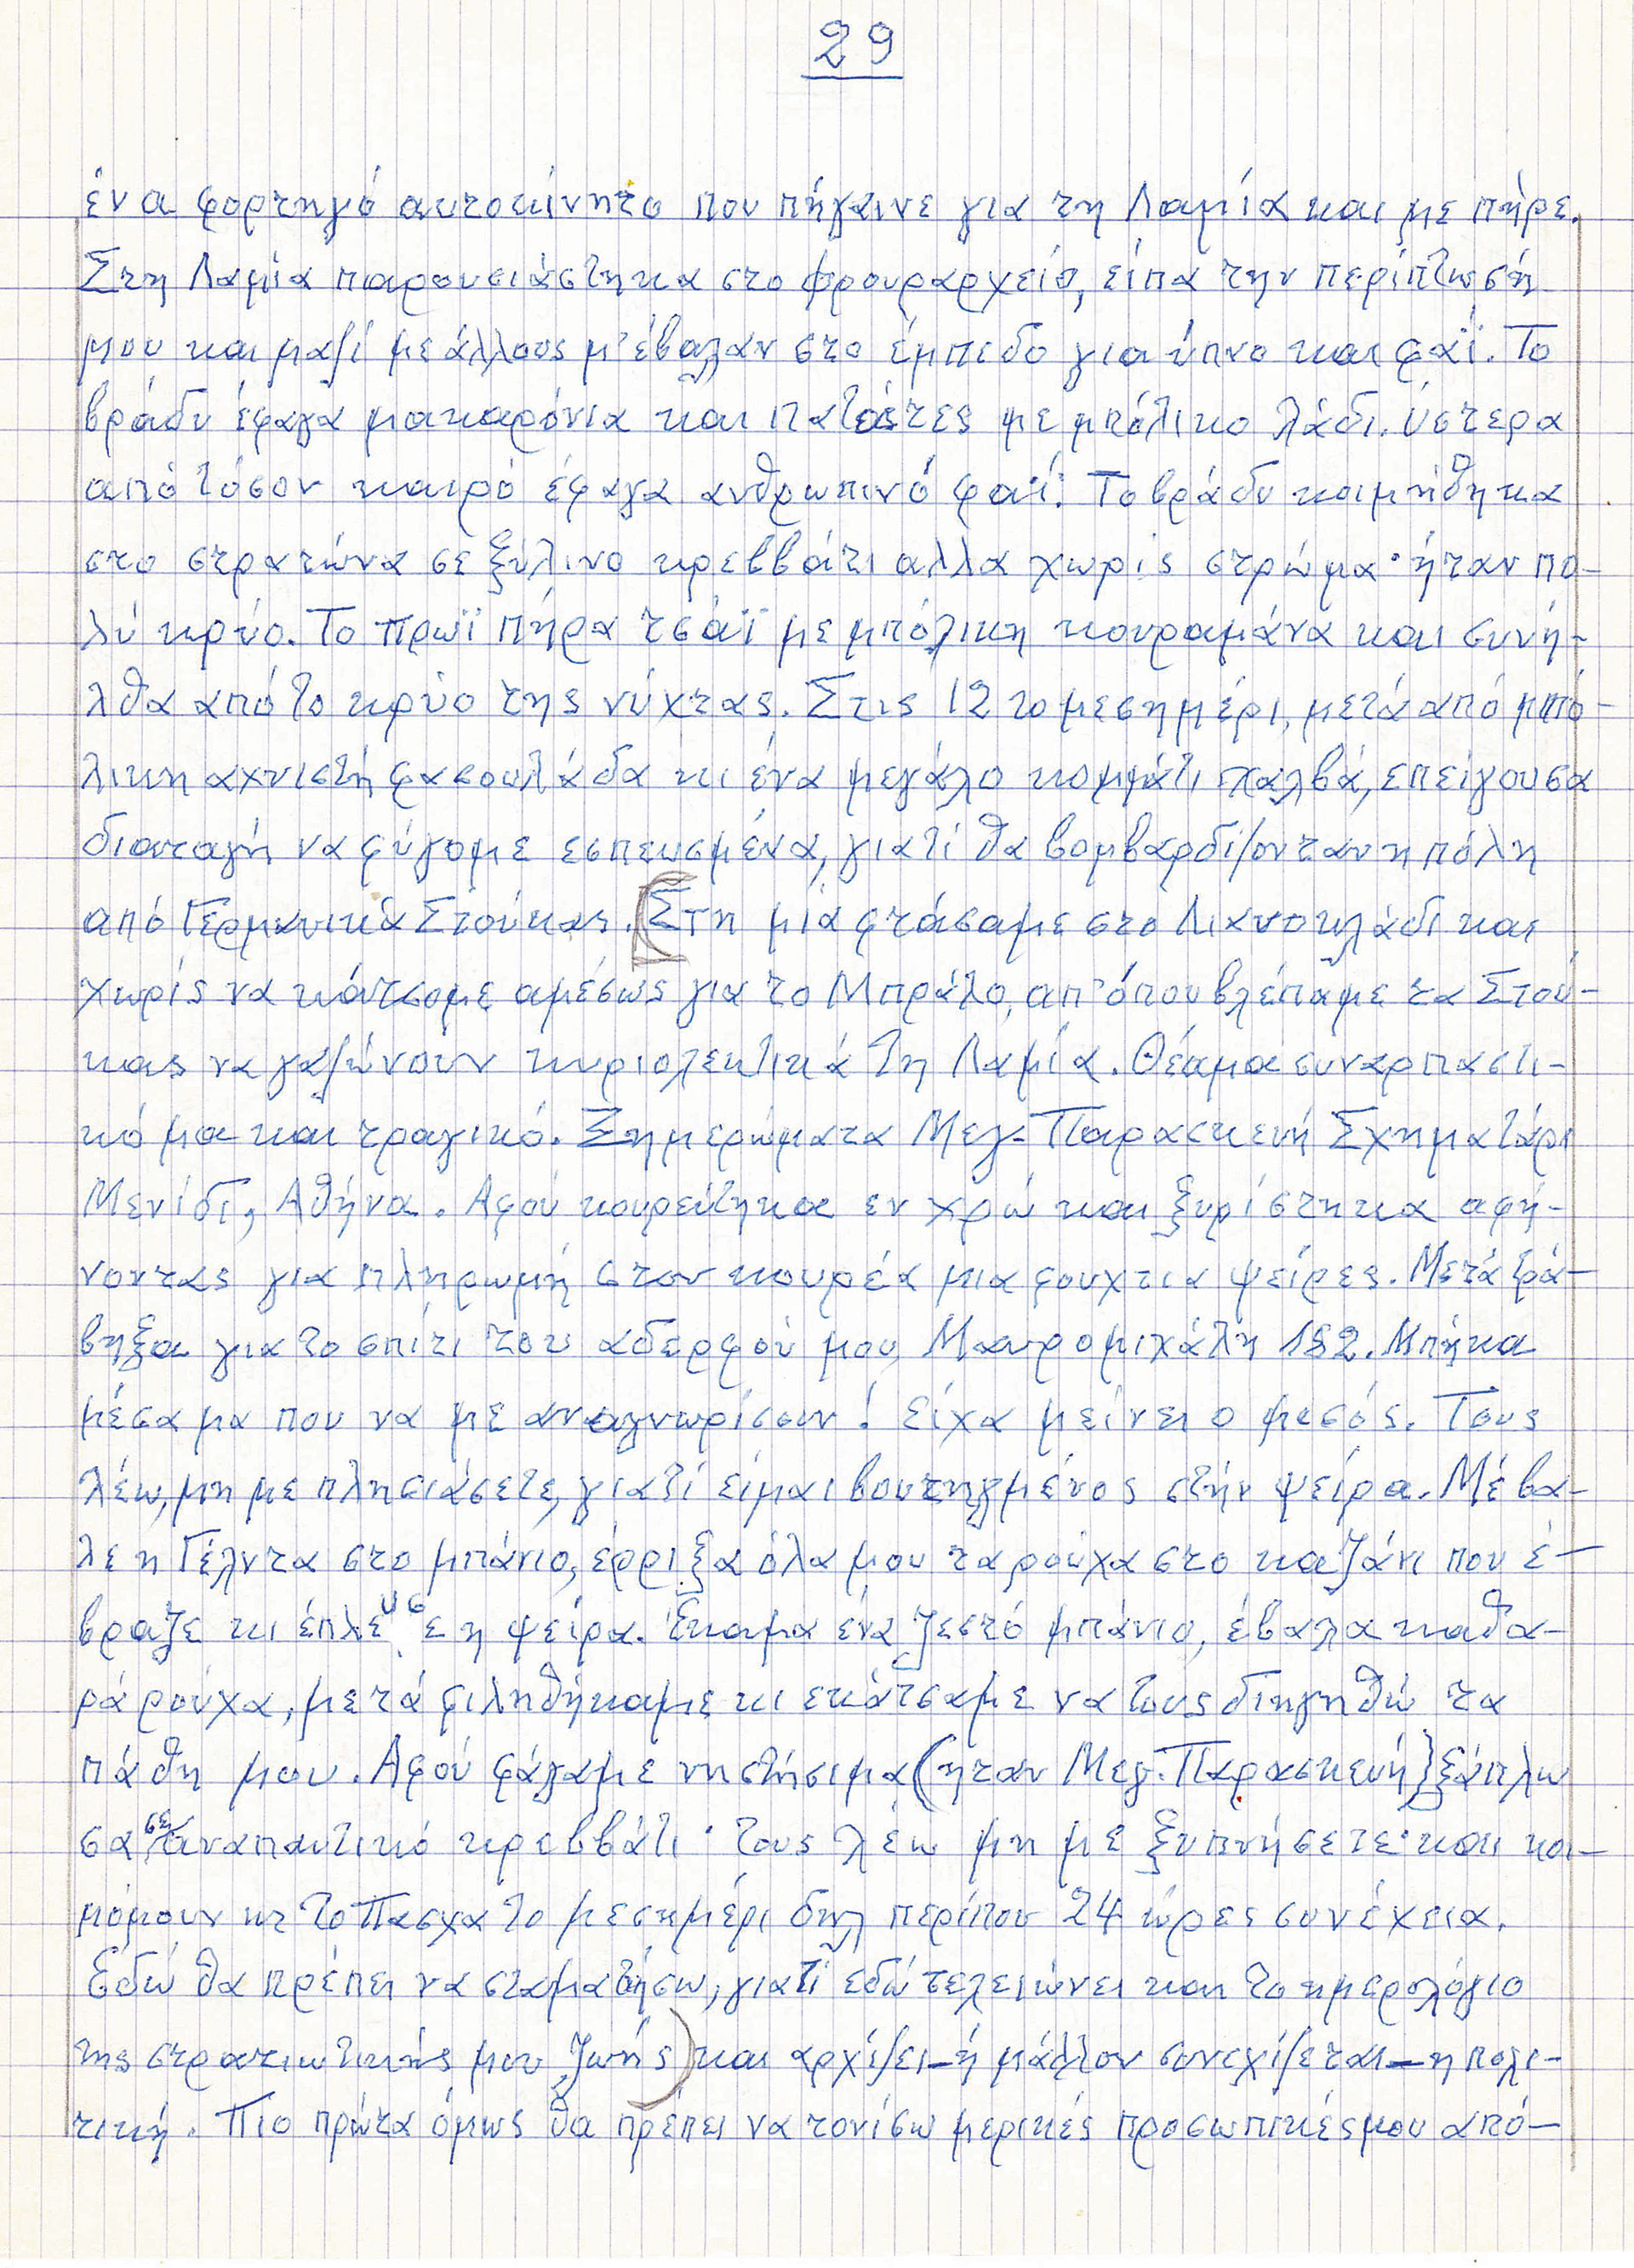 29
ένα φορτηγό αυτοκίνητο που πήγαινε για τη Λαμία και με πήρε.
Στη Λαμία παρουσιάστηκα στο φρουραρχείο, είπα την περίπτωσή
μου και μαζί με άλλους μ' έβαλαν στο έμπεδο για ύπνο και φαΐ. Το
βράδυ έφαγα μακαρόνια και πατάτες με μπόλικο λάδι. ύστερα
από τόσον καιρό έφαγα ανθρωπινό φαΐ. Το βράδυ κοιμήθηκα
στο στρατώνα σε ξύλινο κρεββάτι αλλά χωρίς στρώμα· ήταν πο-
λύ κρύο. Το πρωΐ πήρα τσάϊ με μπόλικη κουραμάνα και συνή-
λθα από το κρύο της νύχτας. Στις 12 το μεσημέρι, μετά από μπό-
λικη αχνιστή φασουλάδα κι ένα μεγάλο κομμάτι χαλβά, επείγουσα
διαταγή να φύγομε εσπευσμένα, γιατί θα βομβαρδίζονταν η πόλη
από Γερμανικά Στούκας. (Στη μία φτάσαμε στο Λιανοκλάδι και
χωρίς να κάτσομε αμέσως για το Μπράλο, απ' όπου βλέπαμε τα Στού-
κας να γαζώνουν κυριολεκτικά τη Λαμία. Θέαμα συναρπαστι-
κό μα και τραγικό. Ξημερώματα Μεγ. Παρασκευή Σχηματάρι
Μενίδι, Αθήνα. Αφού κουρεύτηκα εν χρώ και ξυρίστηκα αφή-
νοντας για πληρωμή στον κουρέα μια φουχτια ψείρες. Μετά τρά-
βηξα για το σπίτι του αδερφού μου Μαυρομιχάλη 182. Μπήκα
μέσα μα που να με αναγνωρίσουν! Είχα μείνει ο μισός. Τους
λέω, μη με πλησιάσετε, γιατί είμαι βουτηγμένος στήν ψείρα. Μέ βα-
λε η Γέλντα στο μπάνιο, έρριξα όλα μου τα ρούχα στο καζάνι που έ-
βραζε κι έπλευσε η ψείρα. Έκαμα ένα ζεστό μπάνιο, έβαλα καθα-
ρά ρούχα, μετά φιληθήκαμε κι εκάτσαμε να τους διηγηθώ τα
πάθη μου. Αφού φάγαμε νηστήσιμα (ήταν Μεγ. Παρασκευή) ξάπλω
σα σε αναπαυτικό κρεββάτι· τους λέω μη με ξυπνήσετε· και κοι-
μόμουν ως το Πάσχα το μεσημέρι δηλ περίπου 24 ώρες συνέχεια.
Εδώ θα πρέπει να σταματήσω, γιατί εδώ τελειώνει και το ημερολόγιο
της στρατιωτικής μου ζωής) και αρχίζει – ή μάλλον συνεχίζεται – η πολι-
τική. Πιο πρώτα όμως θα πρέπει να τονίσω μερικές προσωπικές μου από-